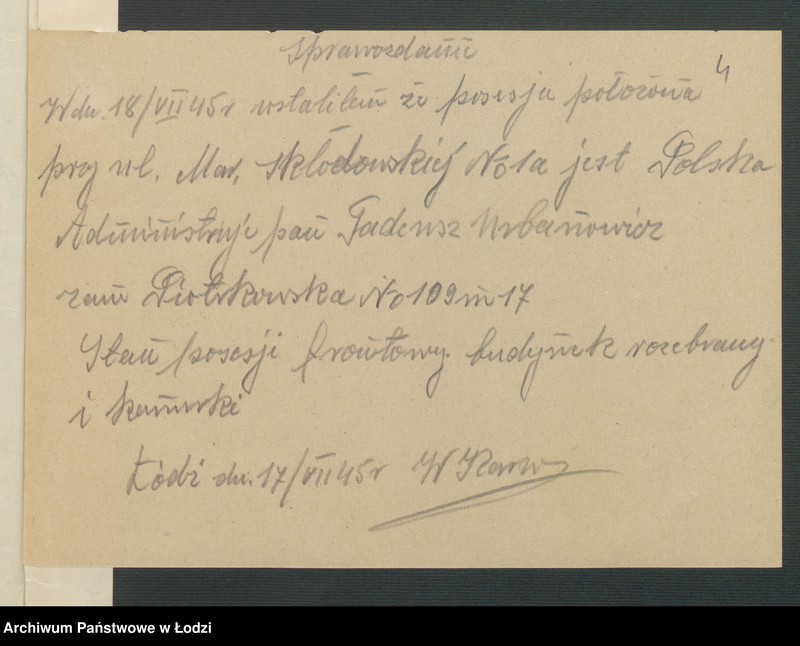 Sprawozdanie
4
W dn. 18/VII 45 r ustaliłem że posesja położona
przy ul. Mar. Skłodowskiej No 1a jest Polska
Administruje pan Tadeusz Urbanowicz
zam Piotrkowska No 109 m 17
Stan posesji frontowy budynek rozebrany
i komórki
Łódź dn. 17/VII 45 r W
Archiwum Państwowe w Łodzi